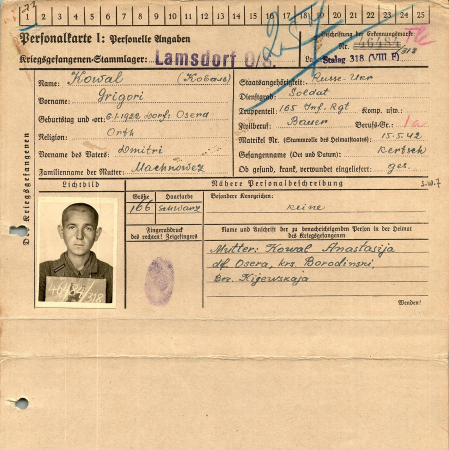 1 2 3 4 5 6 7 8 9 10 11 12 13 14 15 16 17 18 19 20 21 22 23 24 25
Personalkarte I: Personelle Angaben
Beschriftung der Erkennungsmarke
Nr. 46484
Kriegsgefangenen-Stammlager: Lamsdorf O/S.
Stalag 318 (VIII F)
Des Kriegsgefangenen
Name: Kowal (Коваль)
Vorname: Grigori
Geburtstag und -ort: 6.1.1922 Dorf: Osera
Religion: Orth
Vorname des Vaters: Dmitri
Familienname der Mutter: Machnowez
Staatsangehörigkeit: Russe-Ukr
Dienstgrad: Soldat
Truppenteil: 165 Inf. Rgt Komp. usw.:
Zivilberuf: Bauer Berufs-Gr.: 1a
Matrikel Nr. (Stammrolle des Heimatstaates): 15.5.42
Gefangennahme (Ort und Datum): Kertsch
Ob gesund, krank, verwundet eingeliefert: ges.
Lichtbild
46484/318
Nähere Personalbeschreibung
Größe Haarfarbe Besondere Kennzeichen:
166 schwarz keine
Fingerabdruck
des rechten! Zeigefingers
Name und Anschrift der zu benachrichtigenden Person in der Heimat
des Kriegsgefangenen
Mutter: Kowal Anastasija
df. Osera, krs. Borodinski,
Brs. Kijewskaja
Wenden!